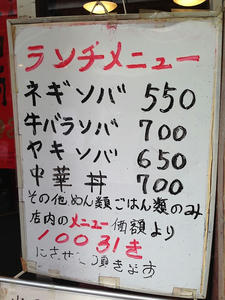 ランチメニュー
ネギソバ 550
牛バラソバ 700
ヤキソバ 650
中華丼 700
その他めん類ごはん類のみ
店内のメニュー価額より
10031き
にさせて頂きます